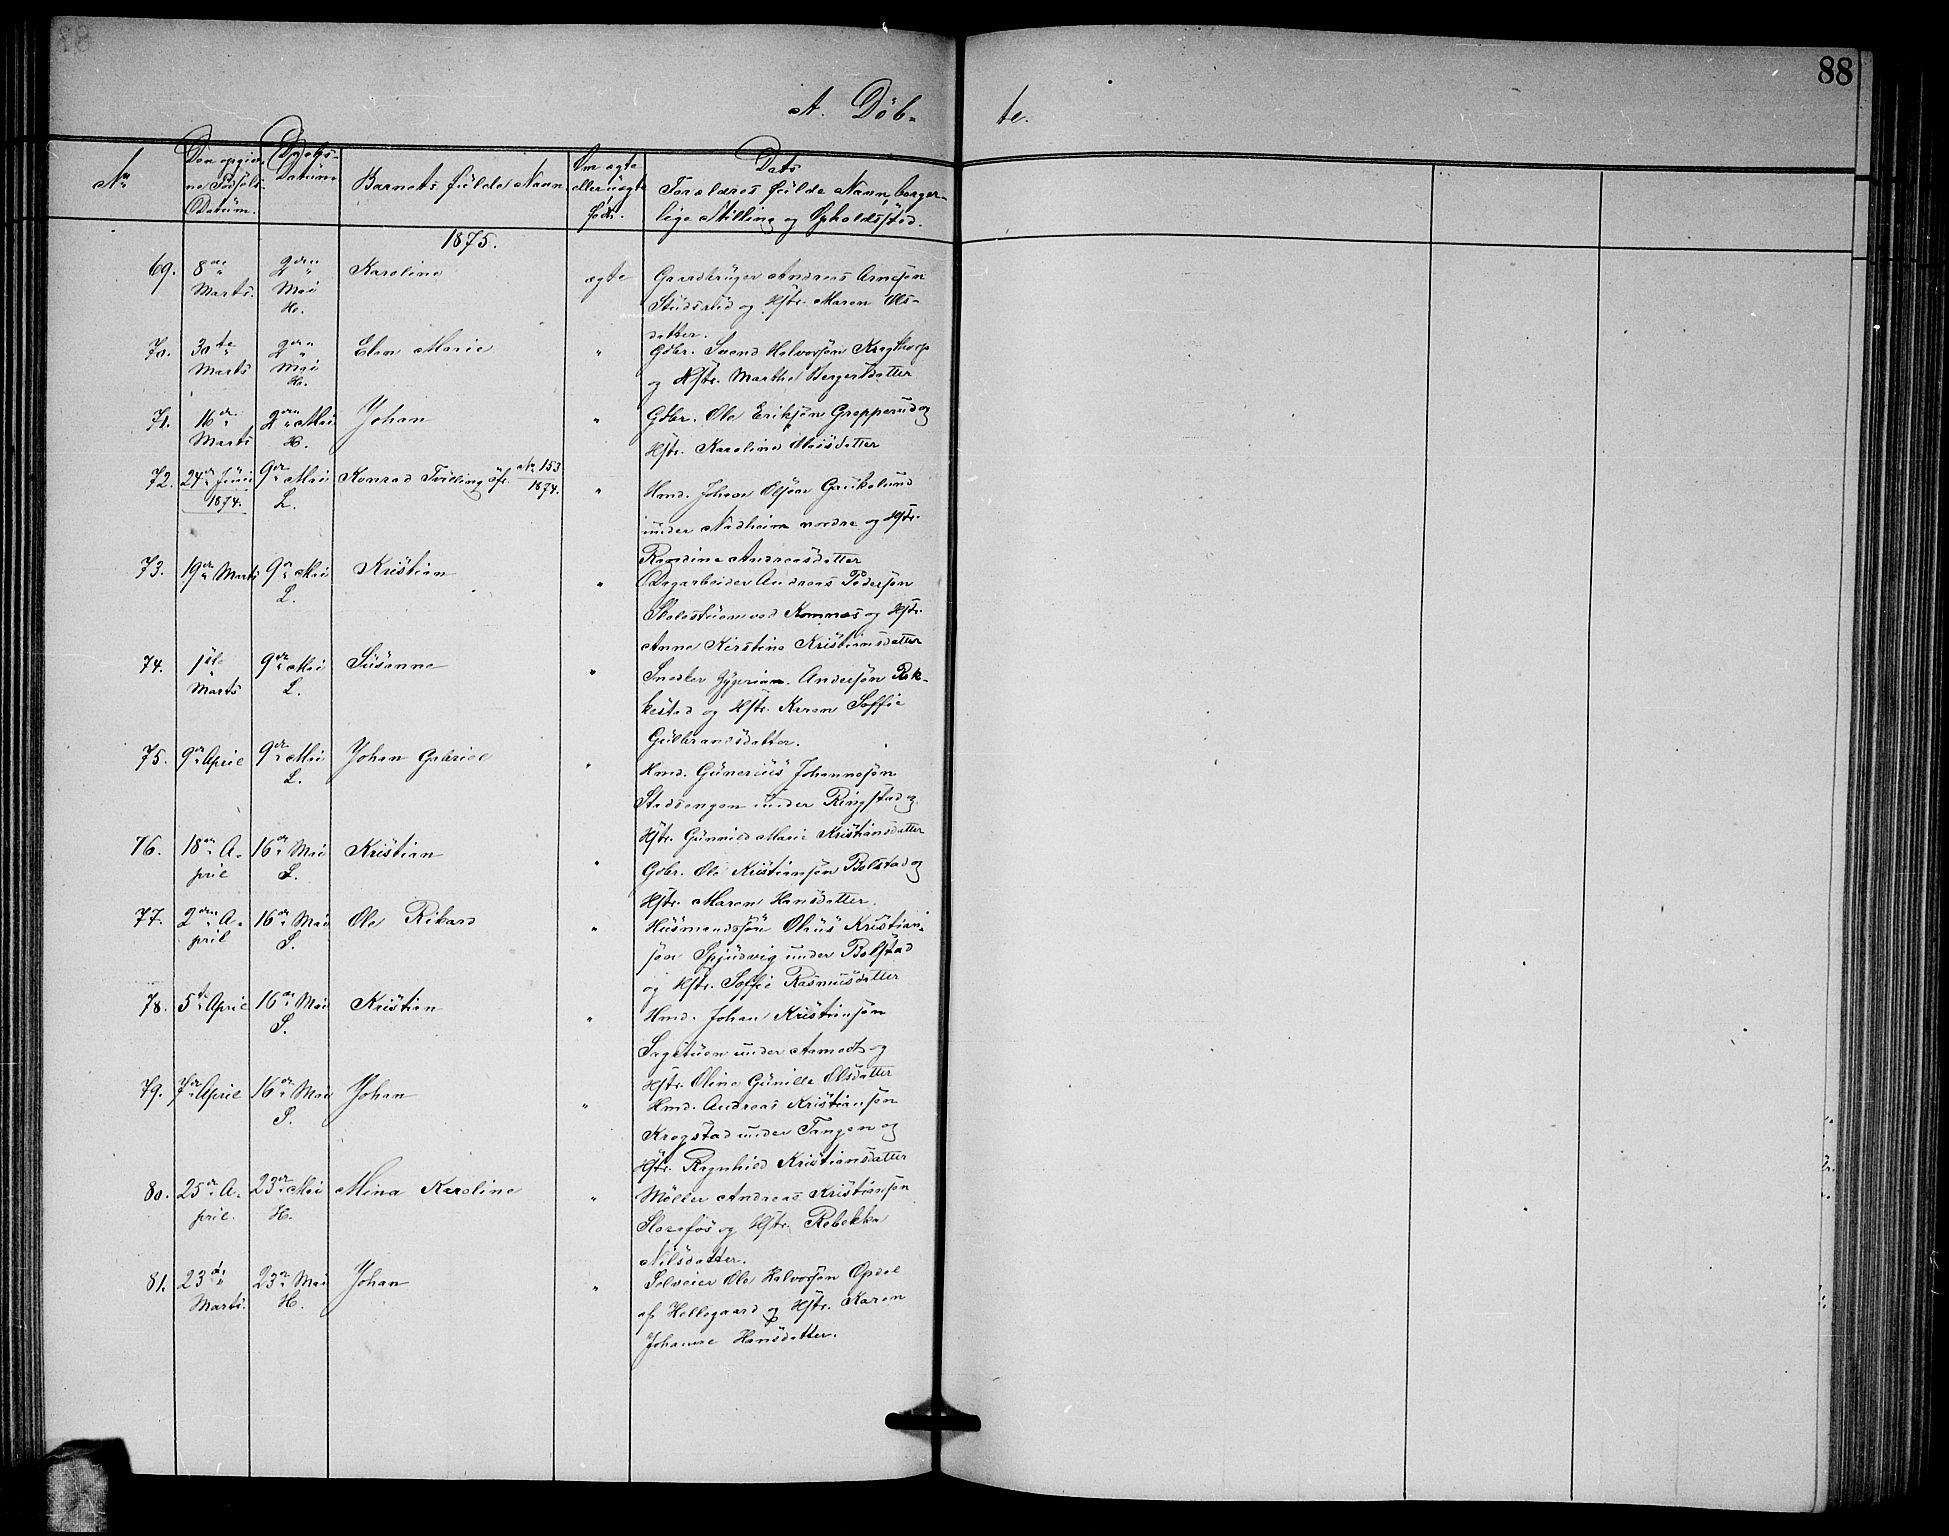 88
A. Døb- te.
No
Den opgiv-
ne Fødsels-
Datum.
Daabs-
Datum
Barnets fulde Navn
Om ægte
eller uægte
født.
Dets
Forældres fulde Navn, borger-
lige Stilling og Opholdssted.
1875.
69. 8de Marts. 2den Mai H. Karoline ægte Gaardbruger Andreas Arnesøn
Studsrud og Hstr. Maren Ols-
datter.
70. 30te Marts 2den Mai H. Elen Marie " Gdbr. Svend Halvorsøn Kragthorp
og Hstr. Marthe Bergersdatter
71. 16de Marts 2den Mai H. Johan " Gdbr. Ole Eriksøn Gropperud og
Hstr. Karoline
72. 24de Juni 1874. 9de Mai L. Konrad Tvilling jfr. No 153 1874. " Hmd. Johan Olsøn Gaukelund
under Nadheim nordre og Hstr.
Randine Andreasdatter
73. 19de Marts 9de Mai L. Kristian " Dagarbeider Andreas Pedersøn
Skolestuen ved Komnæs og Hstr.
Anne Kirstine Kristiansdatter
74. 1ste Marts 9de Mai L. Susanne " Snedker Andersøn Rak-
kestad og Hstr. Karen Soffie
Gulbrandsdatter.
75. 9de April 9de Mai L. Johan Gabriel " Hmd. Gunerius Johannesøn
Stadsengen under Ringstad og
Hstr. Gunnild Marie Kristiansdatter
76. 18de A-
pril 16de Mai S. Kristian " Gdbr. Ole Kristiansøn Bolstad og
Hstr. Maren Hansdatter.
77. 2den A-
pril 16de Mai S. Ole Rikard " Husmandssøn Olaus Kristian-
søn Spjudvig under Bolstad
og Hstr. Soffie Rasmusdatter
78. 5te April 16de Mai S. Kristian " Hmd. Johan Kristiansøn
Sagstuen under Aamodt og
Hstr. Oline Gunille Olsdatter
79. 7de April 16de Mai S. Johan " Hmd. Andreas Kristiansøn
Krogstad under Tangen og
Hstr. Ragnhild Kristiansdatter
80. 25de A-
pril. 23de Mai H. Mina Karoline " Møller Andreas Kristiansøn
Storefos og Hstr. Rebekka
Nilsdatter.
81. 23de Marts. 23de Mai H. Johan " Selveier Ole Halvorsøn Opdal
af Hellegaard og Hstr. Karen
Johanne Hansdatter.